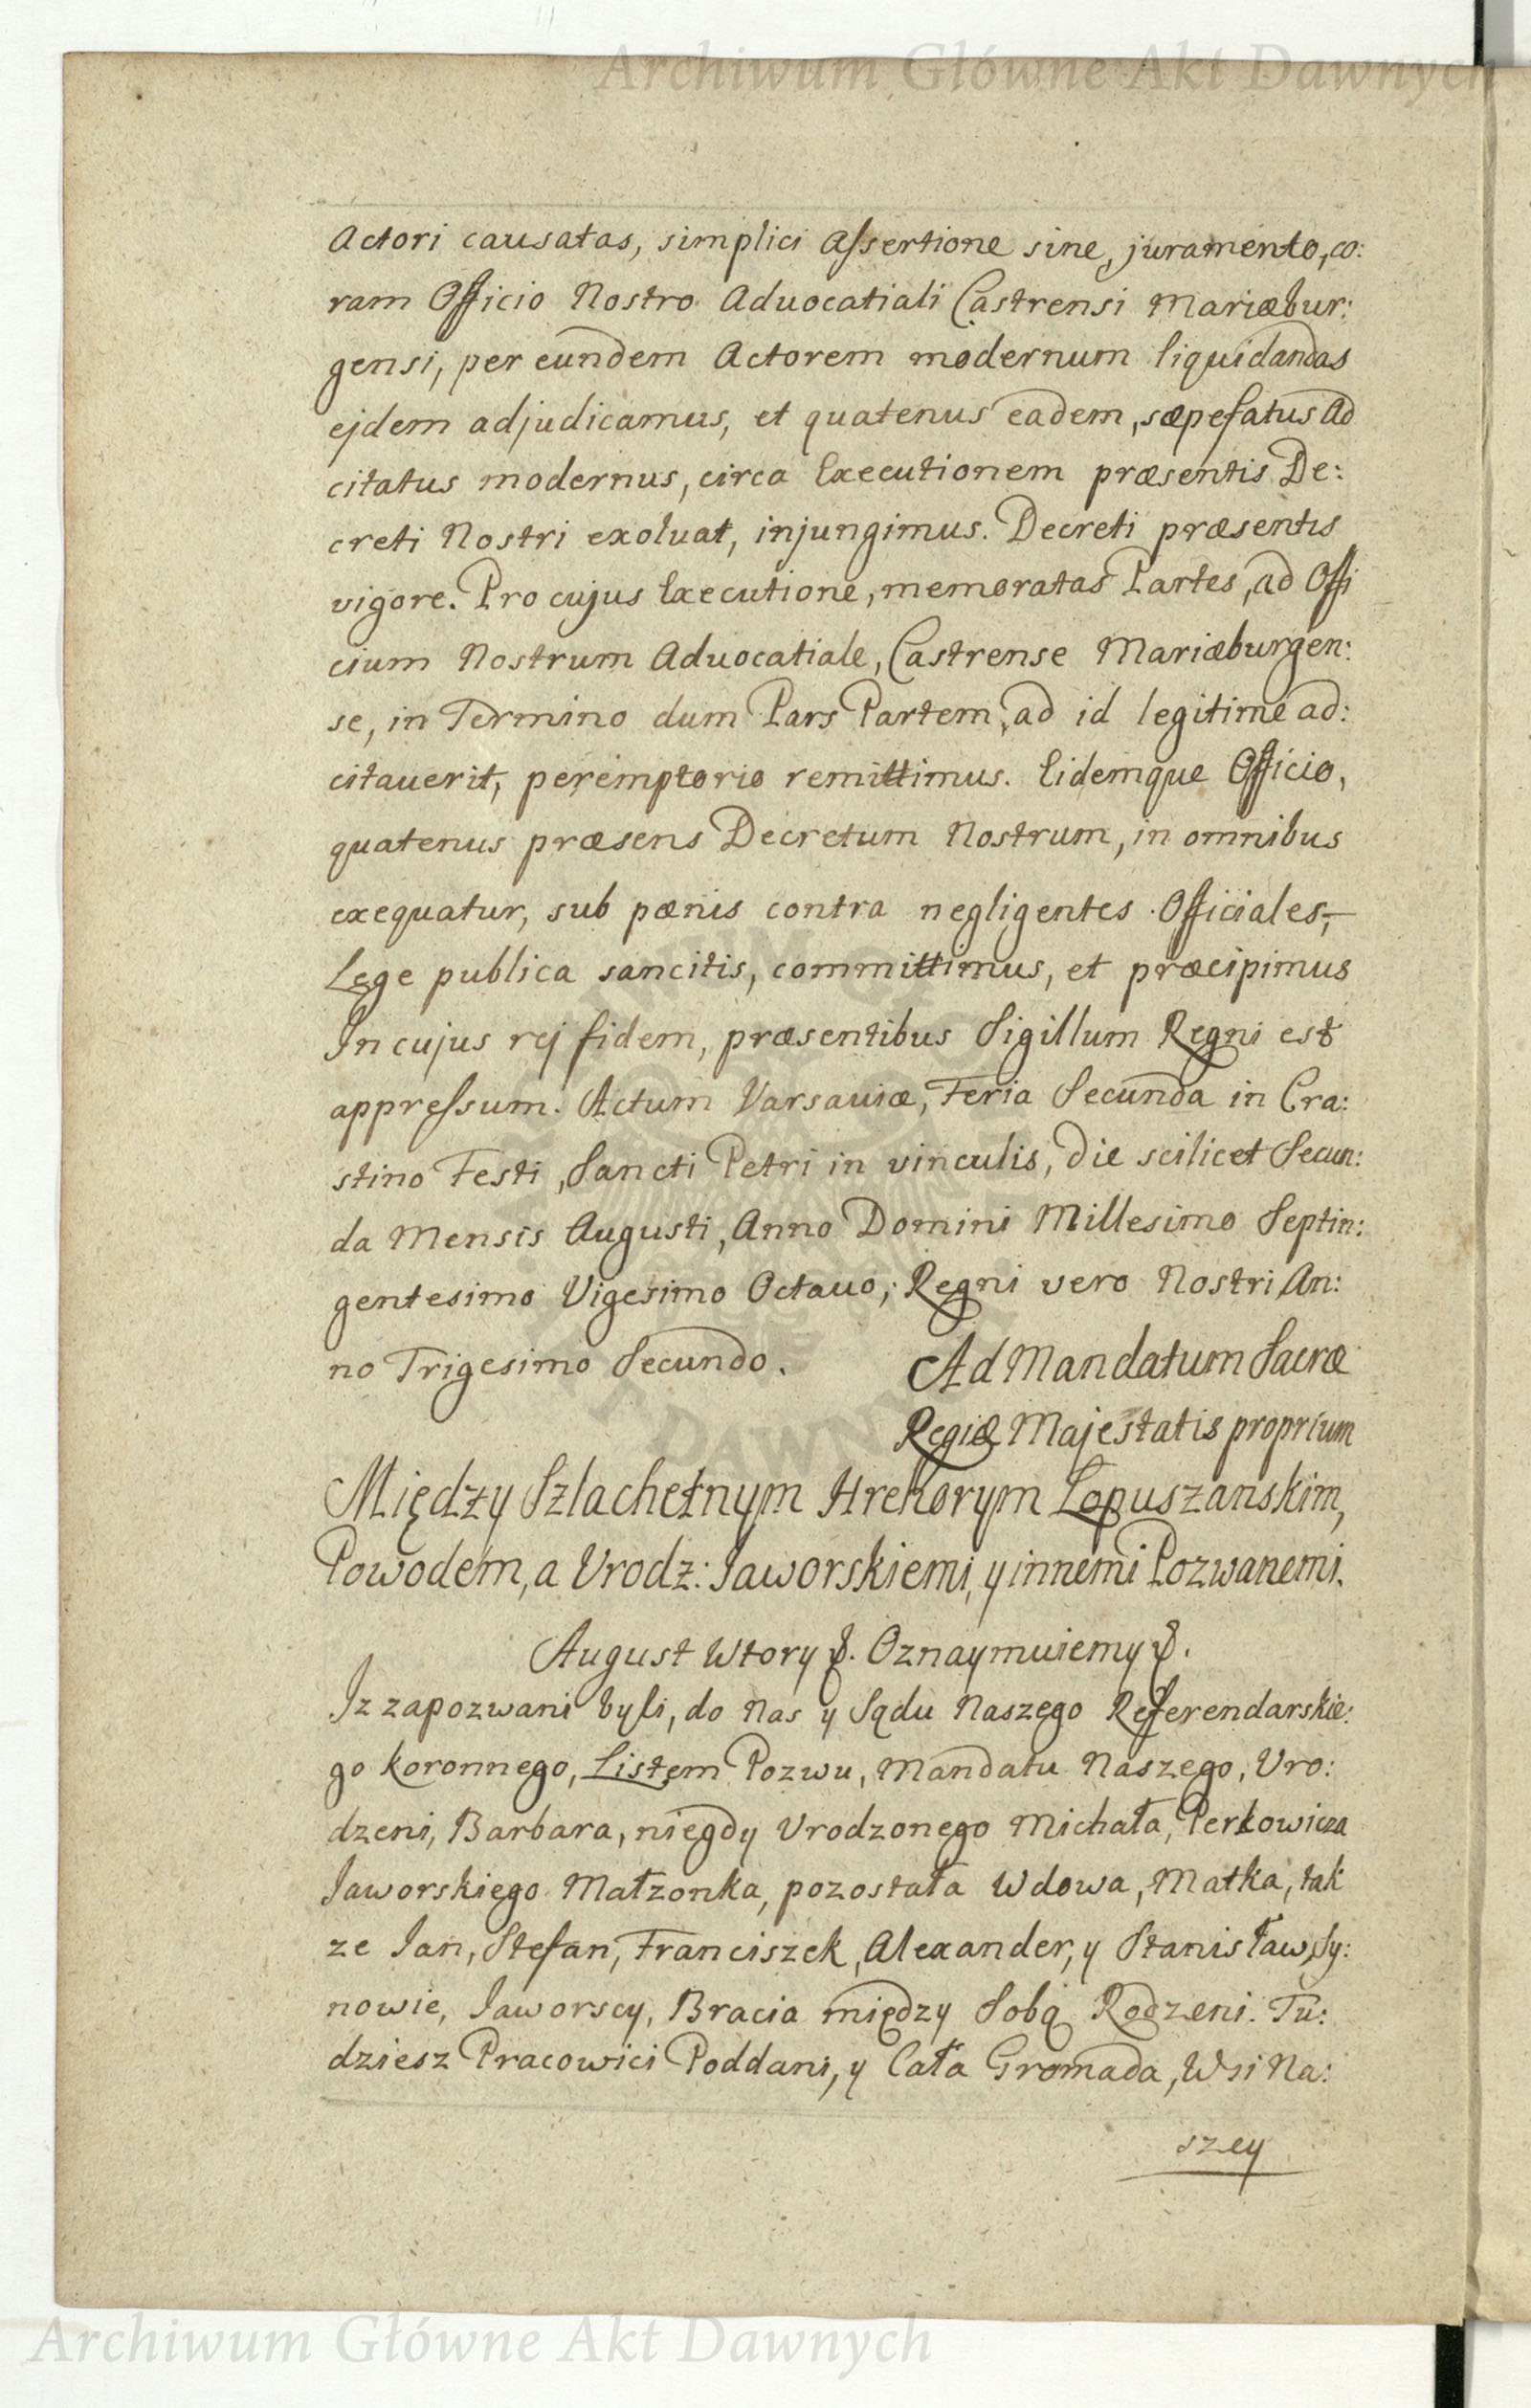 Archiwum Główne Akt Dawnych
Actori causatas, simplici Assertione sine, juramento, co:
ram Officio Nostro Aduocatiali Castrensi Mariæbur:
gensi, per eundem Actorem modernum liquidandas
ejdem adjudicamus, et quatenus eadem, sæpefatus Ad
citatus modernus, circa Executionem præsentis De:
creti Nostri exoluat, injungimus. Decreti præsentis
vigore. Pro cujus Executione, memoratas Partes, ad Offi
cium Nostrum Aduocatiale, Castrense Mariæburgen:
se, in Termino dum Pars Partem, ad id legitime ad:
citauerit, peremptorio remittimus. Eidemque Officio,
quatenus præsens Decretum Nostrum, in omnibus
exequatur, sub pœnis contra negligentes Officiales,
Lege publica sancitis, committimus, et præcipimus
In cujus rej fidem, præsentibus Sigillum Regni est
appressum. Actum Varsauiæ, Feria Secunda in Cra:
stino Festi, Sancti Petri in vinculis, Die scilicet Secun:
da Mensis Augusti, Anno Domini Millesimo Septin:
gentesimo Vigesimo Octauo; Regni vero Nostri An:
no Trigesimo Secundo. Ad Mandatum Sacræ
Regiæ Majestatis proprium
Między Szlachetnym Hrehorym Łopuszanskim,
Powodem, a Vrodz: Jaworskiemi, y innemi Pozwanemi.
August Wtory &. Oznaymuiemy &.
Iz zapozwani byli, do Nas y Sądu Naszego Referendarskie:
go Koronnego, Listem Pozwu, Mandatu Naszego, Vro:
dzeni, Barbara, niegdy Vrodzonego Michała, Perkowicza
Jaworskiego Małzonka, pozostała Wdowa, Matka, tak
ze Jan, Stefan, Franciszek, Alexander, y Stanisław, Sy:
nowie, Jaworscy, Bracia między Sobą Rodzeni. Tu:
dziesz Pracowici Poddani, y Cała Gromada, Wsi Na:
szey
Archiwum Główne Akt Dawnych